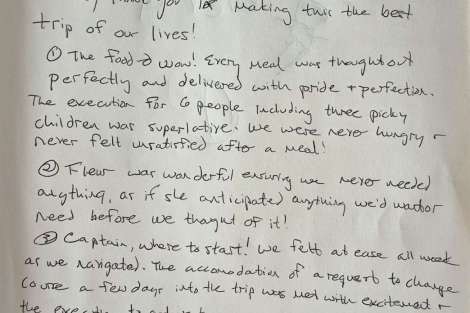 you for making this the best
trip of our lives!
① The food → wow! Every meal was thought out
perfectly and delivered with pride + perfection.
The execution for 6 people including three picky
children was superlative. We were never hungry +
never felt unsatisfied after a meal!
② Fleur was wonderful ensuring we never needed
anything, as if she anticipated anything we'd want or
need before we thought of it!
③ Captain, where to start! We felt at ease all week
as we navigated. The accomodation of a request to change
course a few days into the trip was met with excitement +
the